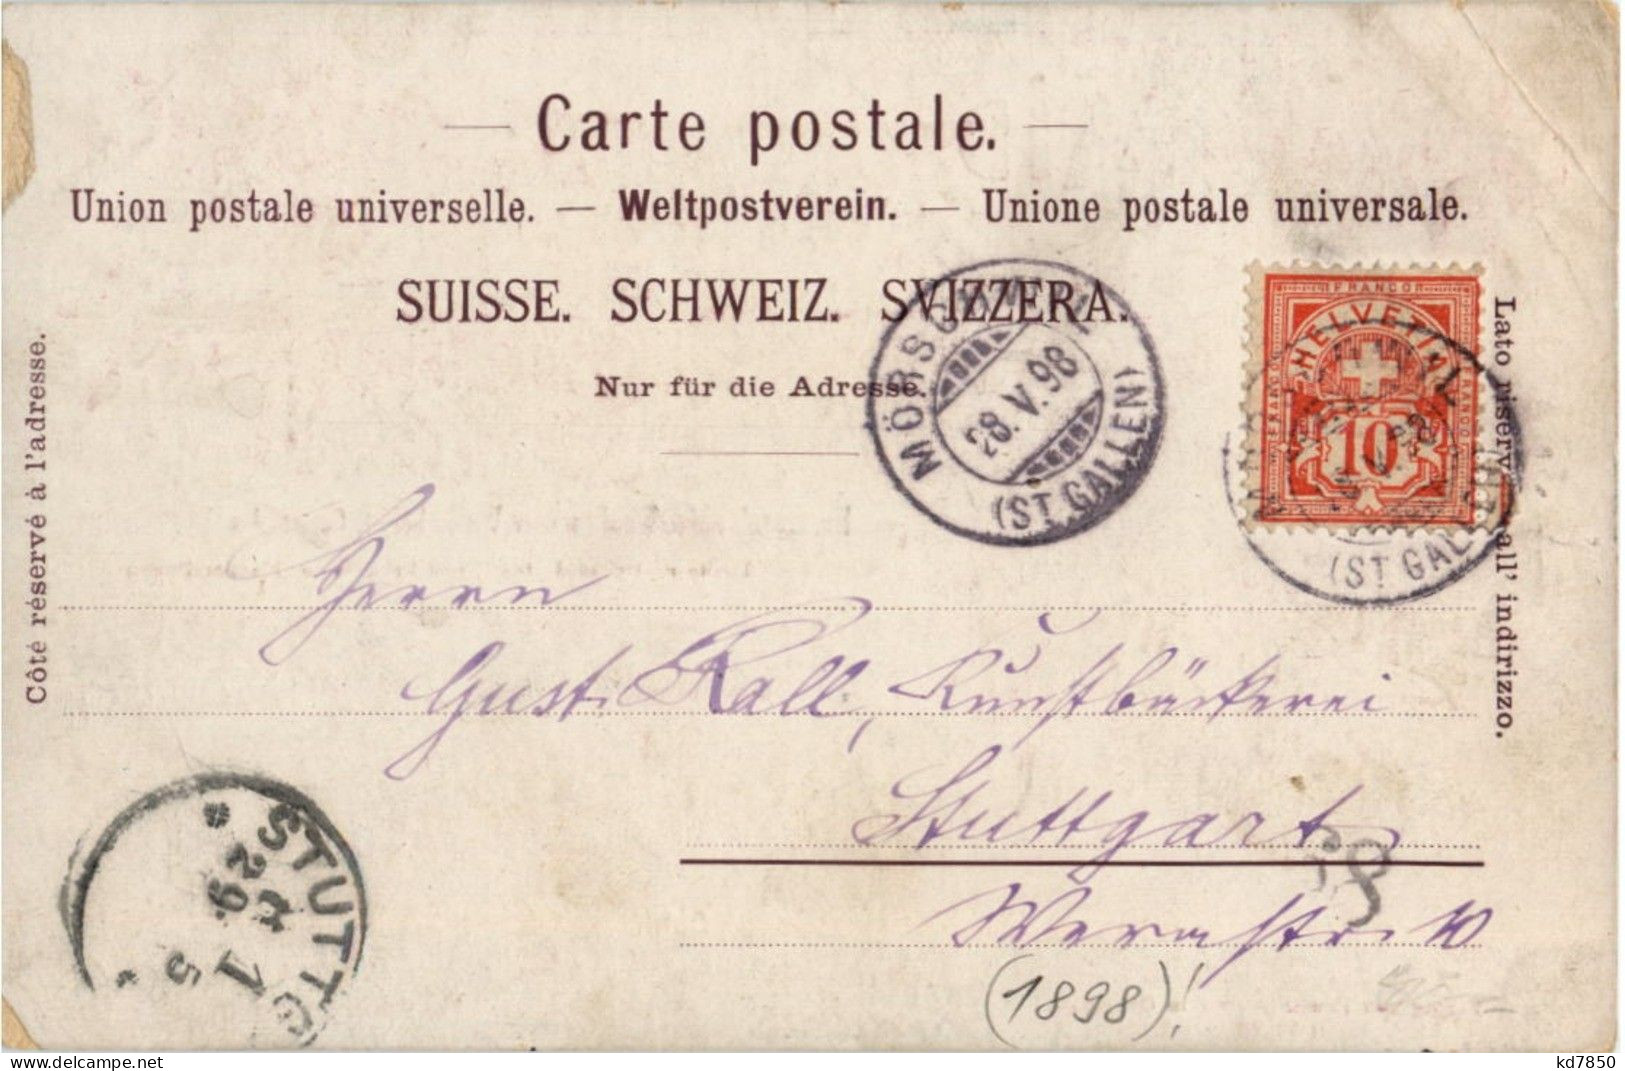 Carte postale.
Union postale universelle. — Weltpostverein. — Unione postale universale.
SUISSE. SCHWEIZ. SVIZZERA.
Nur für die Adresse.
Côté réservé à l'adresse.
Lato riservato all' indirizzo.
MÖRSCHWIL
28.V.98
(ST. GALLEN)
FRANCO
HELVETIA
FRANCO
FRANCO
10
(ST. GALLEN)
Herrn
Gust. Kall, Kunstbäckerei
Stuttgart
Wernstr. 10
(1898)!
STUTTG
29
5
kd7850